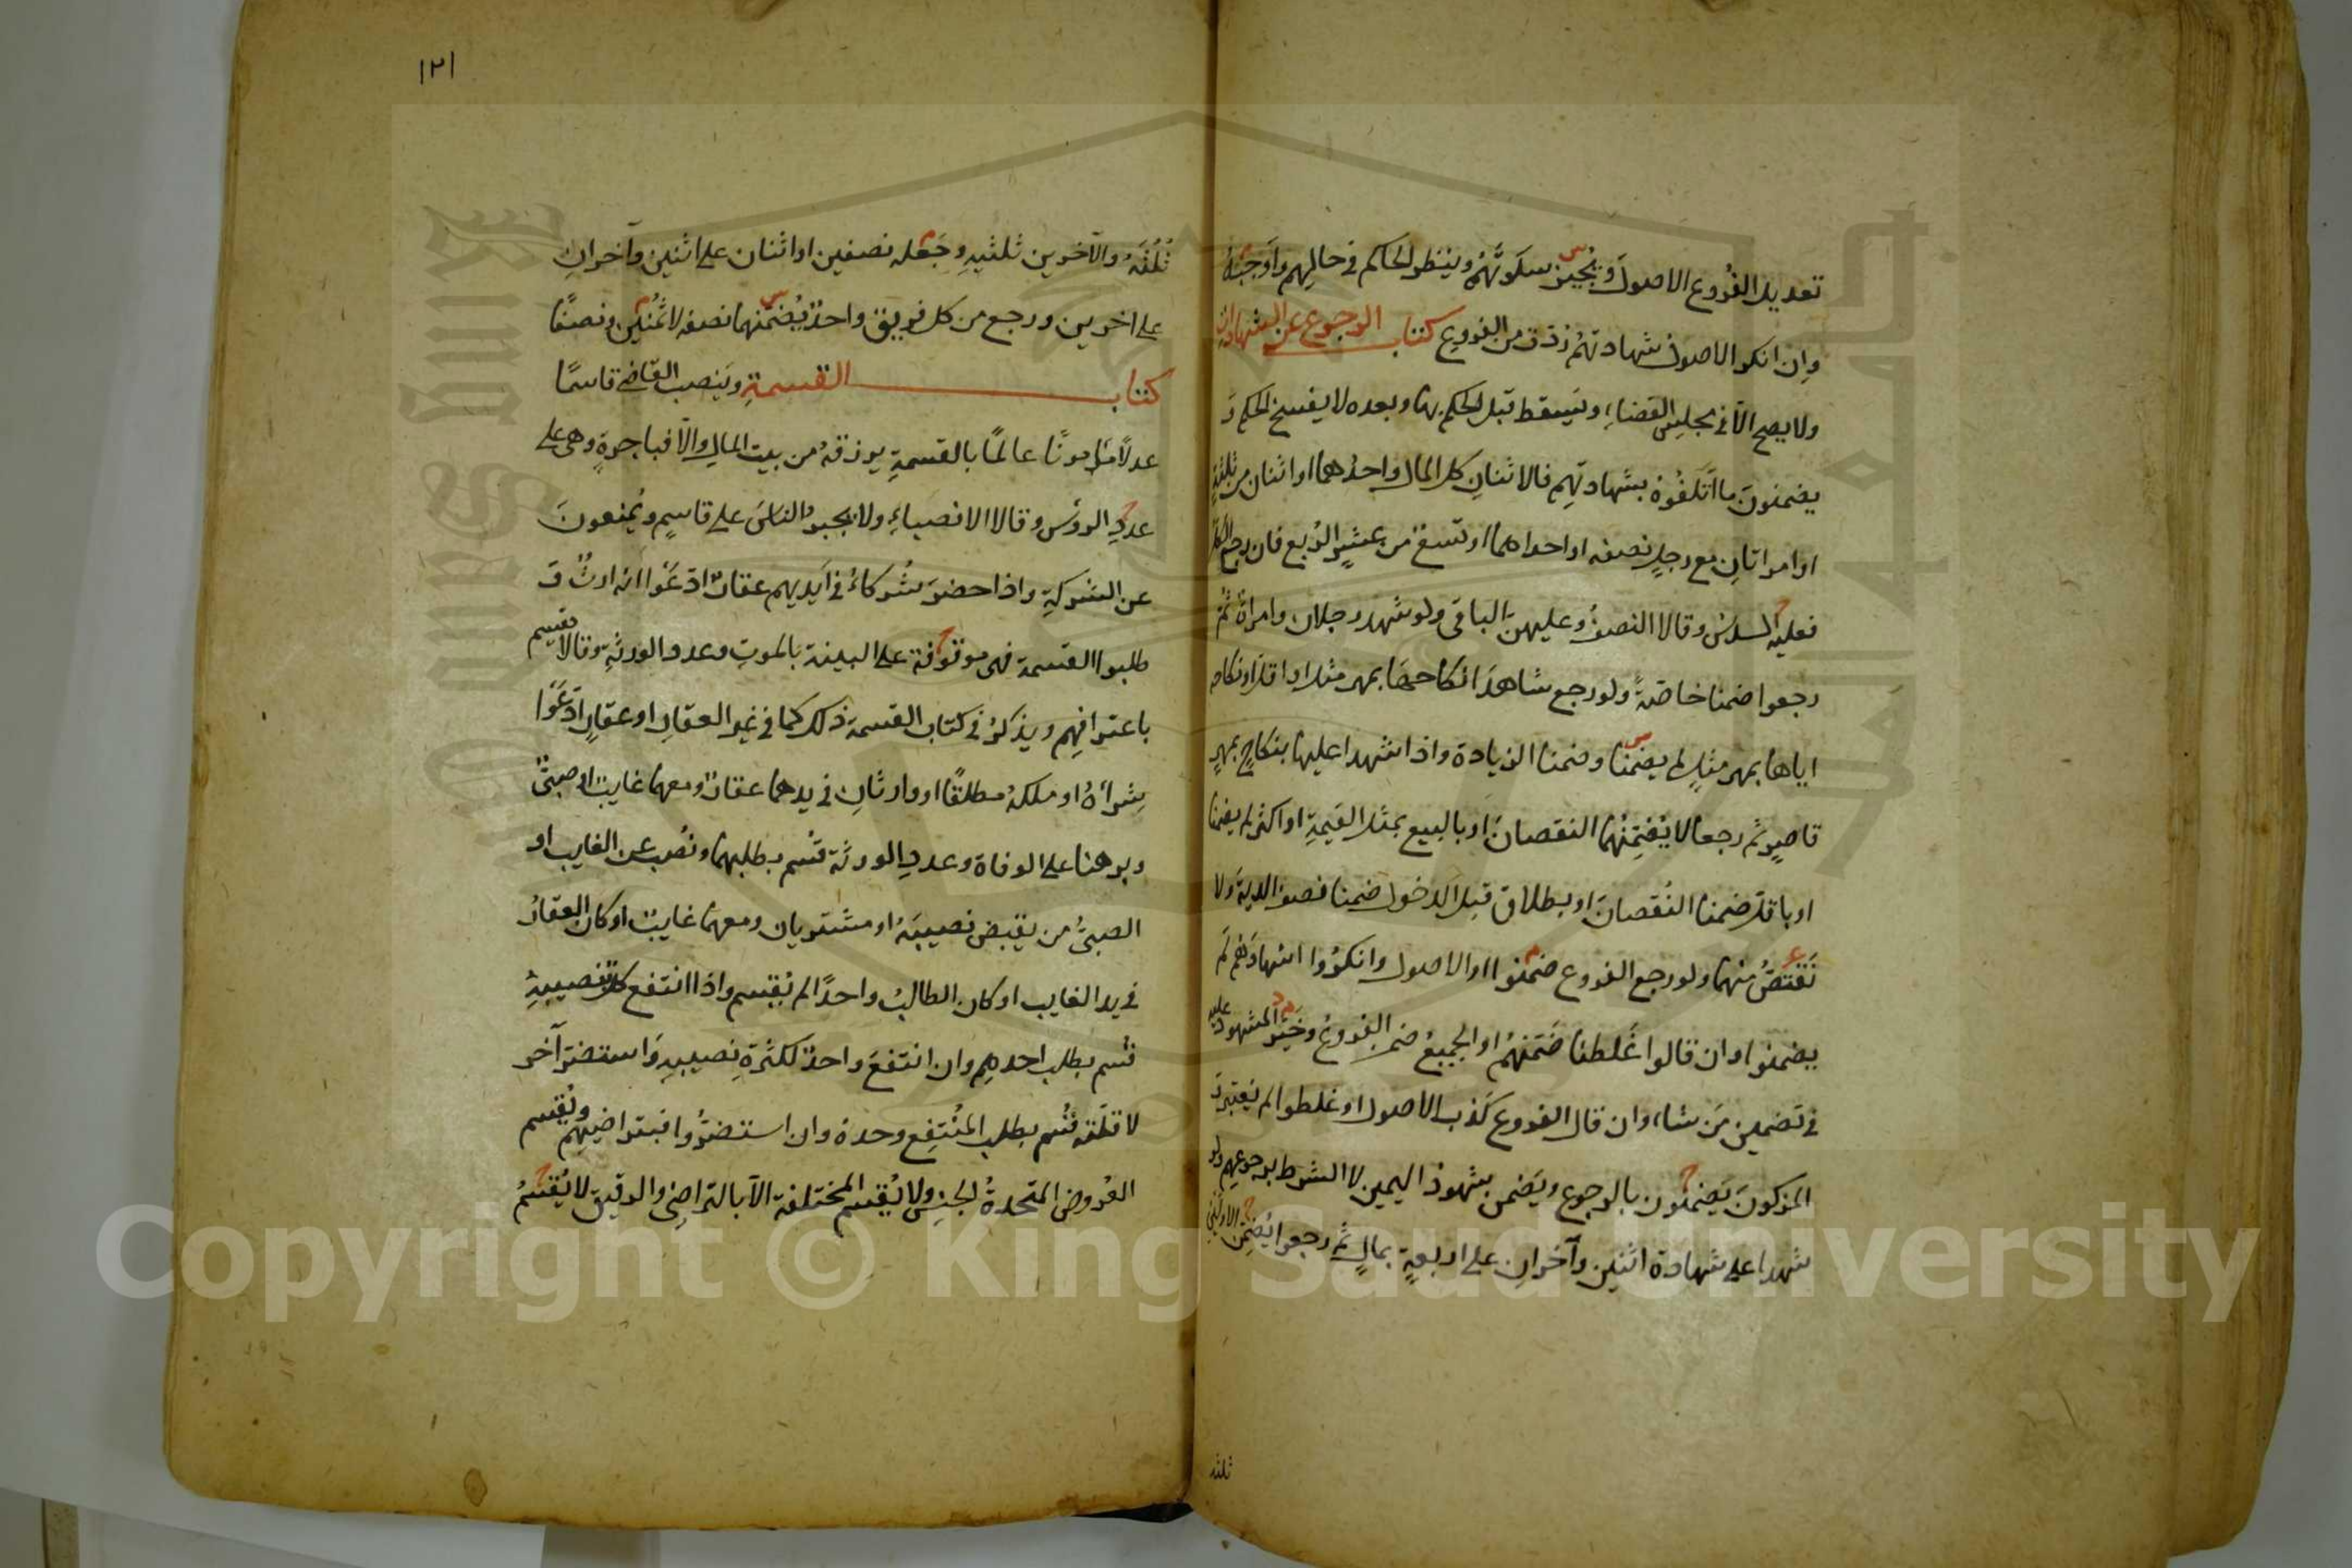 تعديل الفُروع الاصولَ ويُجيز سكوتَهُم وينظر الحاكم في حالهم واَوجَبَهُ
وان انكر الاصول شهادتهم رُدّت من الفروع كتاب الرجوع عن الشهادات
ولا يصح الّا في مجلس القضاء ويَسقط قبل الحكم بها وبعده لا يفسخ الحكم وَ
يضمنونَ ما اَتلَفُوه بشهادتهم فالاثنانِ كل المال واحدُهما او اثنان من ثلثةٍ
او امراتانِ مع رجلٍ نصفه او احداهما او تسعٌ من عشرٍ الرُبع فان رجع الكل
فعليه السدسُ وقالا النصفُ وعليهن الباقي ولو شهد رجلان وامراةٌ ثُم
رجعوا ضمنا خاصّةً ولو رجع شاهدَا نكاحها بمهر مثل او اقل او نكاحه
اياها بمهر مثلٍ لم يضمَنا وضمنا الزيادة واذا شهدا عليها بنكاحٍ بمهرٍ
قاصرٍ ثم رجعا لا يُضَمِّنُهما النقصانَ او بالبيع بمثل القيمةِ او اكثر لم يضمنا
او باقل ضمنا النُقصانَ او بطلاق قبل الدخول ضمنا نصف الدية ولا
نَقتَصُّ منهما ولو رجع الفروع ضمنوا او الاصول وانكرُوا اشهادَهُم لم
يضمنوا وان قالوا غَلطنا ضَمّنَهُم او الجميعُ ضمن الفروعُ وخَيَّر المشهودَ عليه
في تضمين مَن شاء وان قال الفروع كَذب الاصول او غلطوا لم يُعتبر وَ
المزكونَ يَضمَنُون بالرجوع ويَضمن شهودُ اليمين لا الشرط برجوعهم ولو
شهدا على شهادة اثنين وآخرانِ على اربعةٍ بمالٍ ثم رجعوا يُضمِن الاوّلَينِ
ثلثه
١٢١
ثُلُثَهُ والآخرين ثلثيهِ وجَعَله نصفين او اثنان على اثنين وآخرانِ
على اخرين ورجع من كل فريق واحدٌ يُضمّنهما نصفه لا ثمُنَين ونصفًا
كتاب القسمةِ ويَنصب القاضي قاسمًا
عدلًا مامونًا عالمًا بالقسمةِ يرزقهُ من بيت المالِ والّا فباجرةٍ وهي على
عددِ الروسِ وقالا الانصباءِ ولا يجبرُ الناسَ على قاسمٍ ويُمنعونَ
عن الشركةِ واذا حضرَ شُركاءُ في اَيديهم عقارٌ ادّعَوا انّه ارثٌ وَ
طلبوا القسمة فهي موقوفة على البينة بالموتِ وعدد الورثةِ وقالا نقسم
باعترافِهِم ويذكرُ في كتاب القسمة ذلك كما في غير العقارِ او عقارٍ ادّعَوا
شِراَءهُ او ملكهُ مطلقًا او وارثانِ في يدهما عقارٌ ومعهما غايبٌ او صبيٌّ
وبرهنا على الوفاة وعددِ الورثة قُسم بطلبهما ونُصب عن الغايب او
الصبيِّ من يقبض نصيبَهُ او مشتريان ومعهما غايبٌ او كان العقارُ
في يد الغايب او كان الطالبُ واحدًا لم يُقسم واذا انتفع كلٌّ بنصيبهِ
قُسم بطلب احدهم وان انتفعَ واحدٌ لكثرةِ نصيبهِ واستضرّ آخر
لقلّته قُسم بطلب المُنتفِع وحدهُ وان استضرُّوا فبتراضيهم ويُقسم
العُروض المتّحدةُ الجنسِ ولا يُقسم المختلفة الّا بالتراضي والرقيق لا يُقسمُ